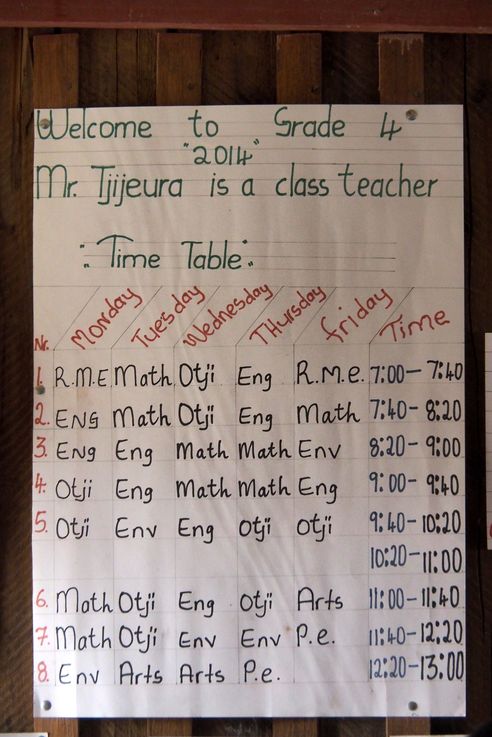 Welcome to Grade 4
"2014"
Mr. Tjijeura is a class teacher
:Time Table:
Nr. Monday Tuesday Wednesday Thursday friday Time
1. R.M.E Math Otji Eng R.m.e. 7:00-7:40
2. ENG Math Otji Eng Math 7:40-8:20
3. Eng Eng Math Math Env 8:20-9:00
4. Otji Eng Math Math Eng 9:00-9:40
5. Otji Env Eng otji otji 9:40-10:20
10:20-11:00
6. Math Otji Eng Otji Arts 11:00-11:40
7. Math Otji Env Env P.e. 11:40-12:20
8. Env Arts Arts P.e. 12:20-13:00